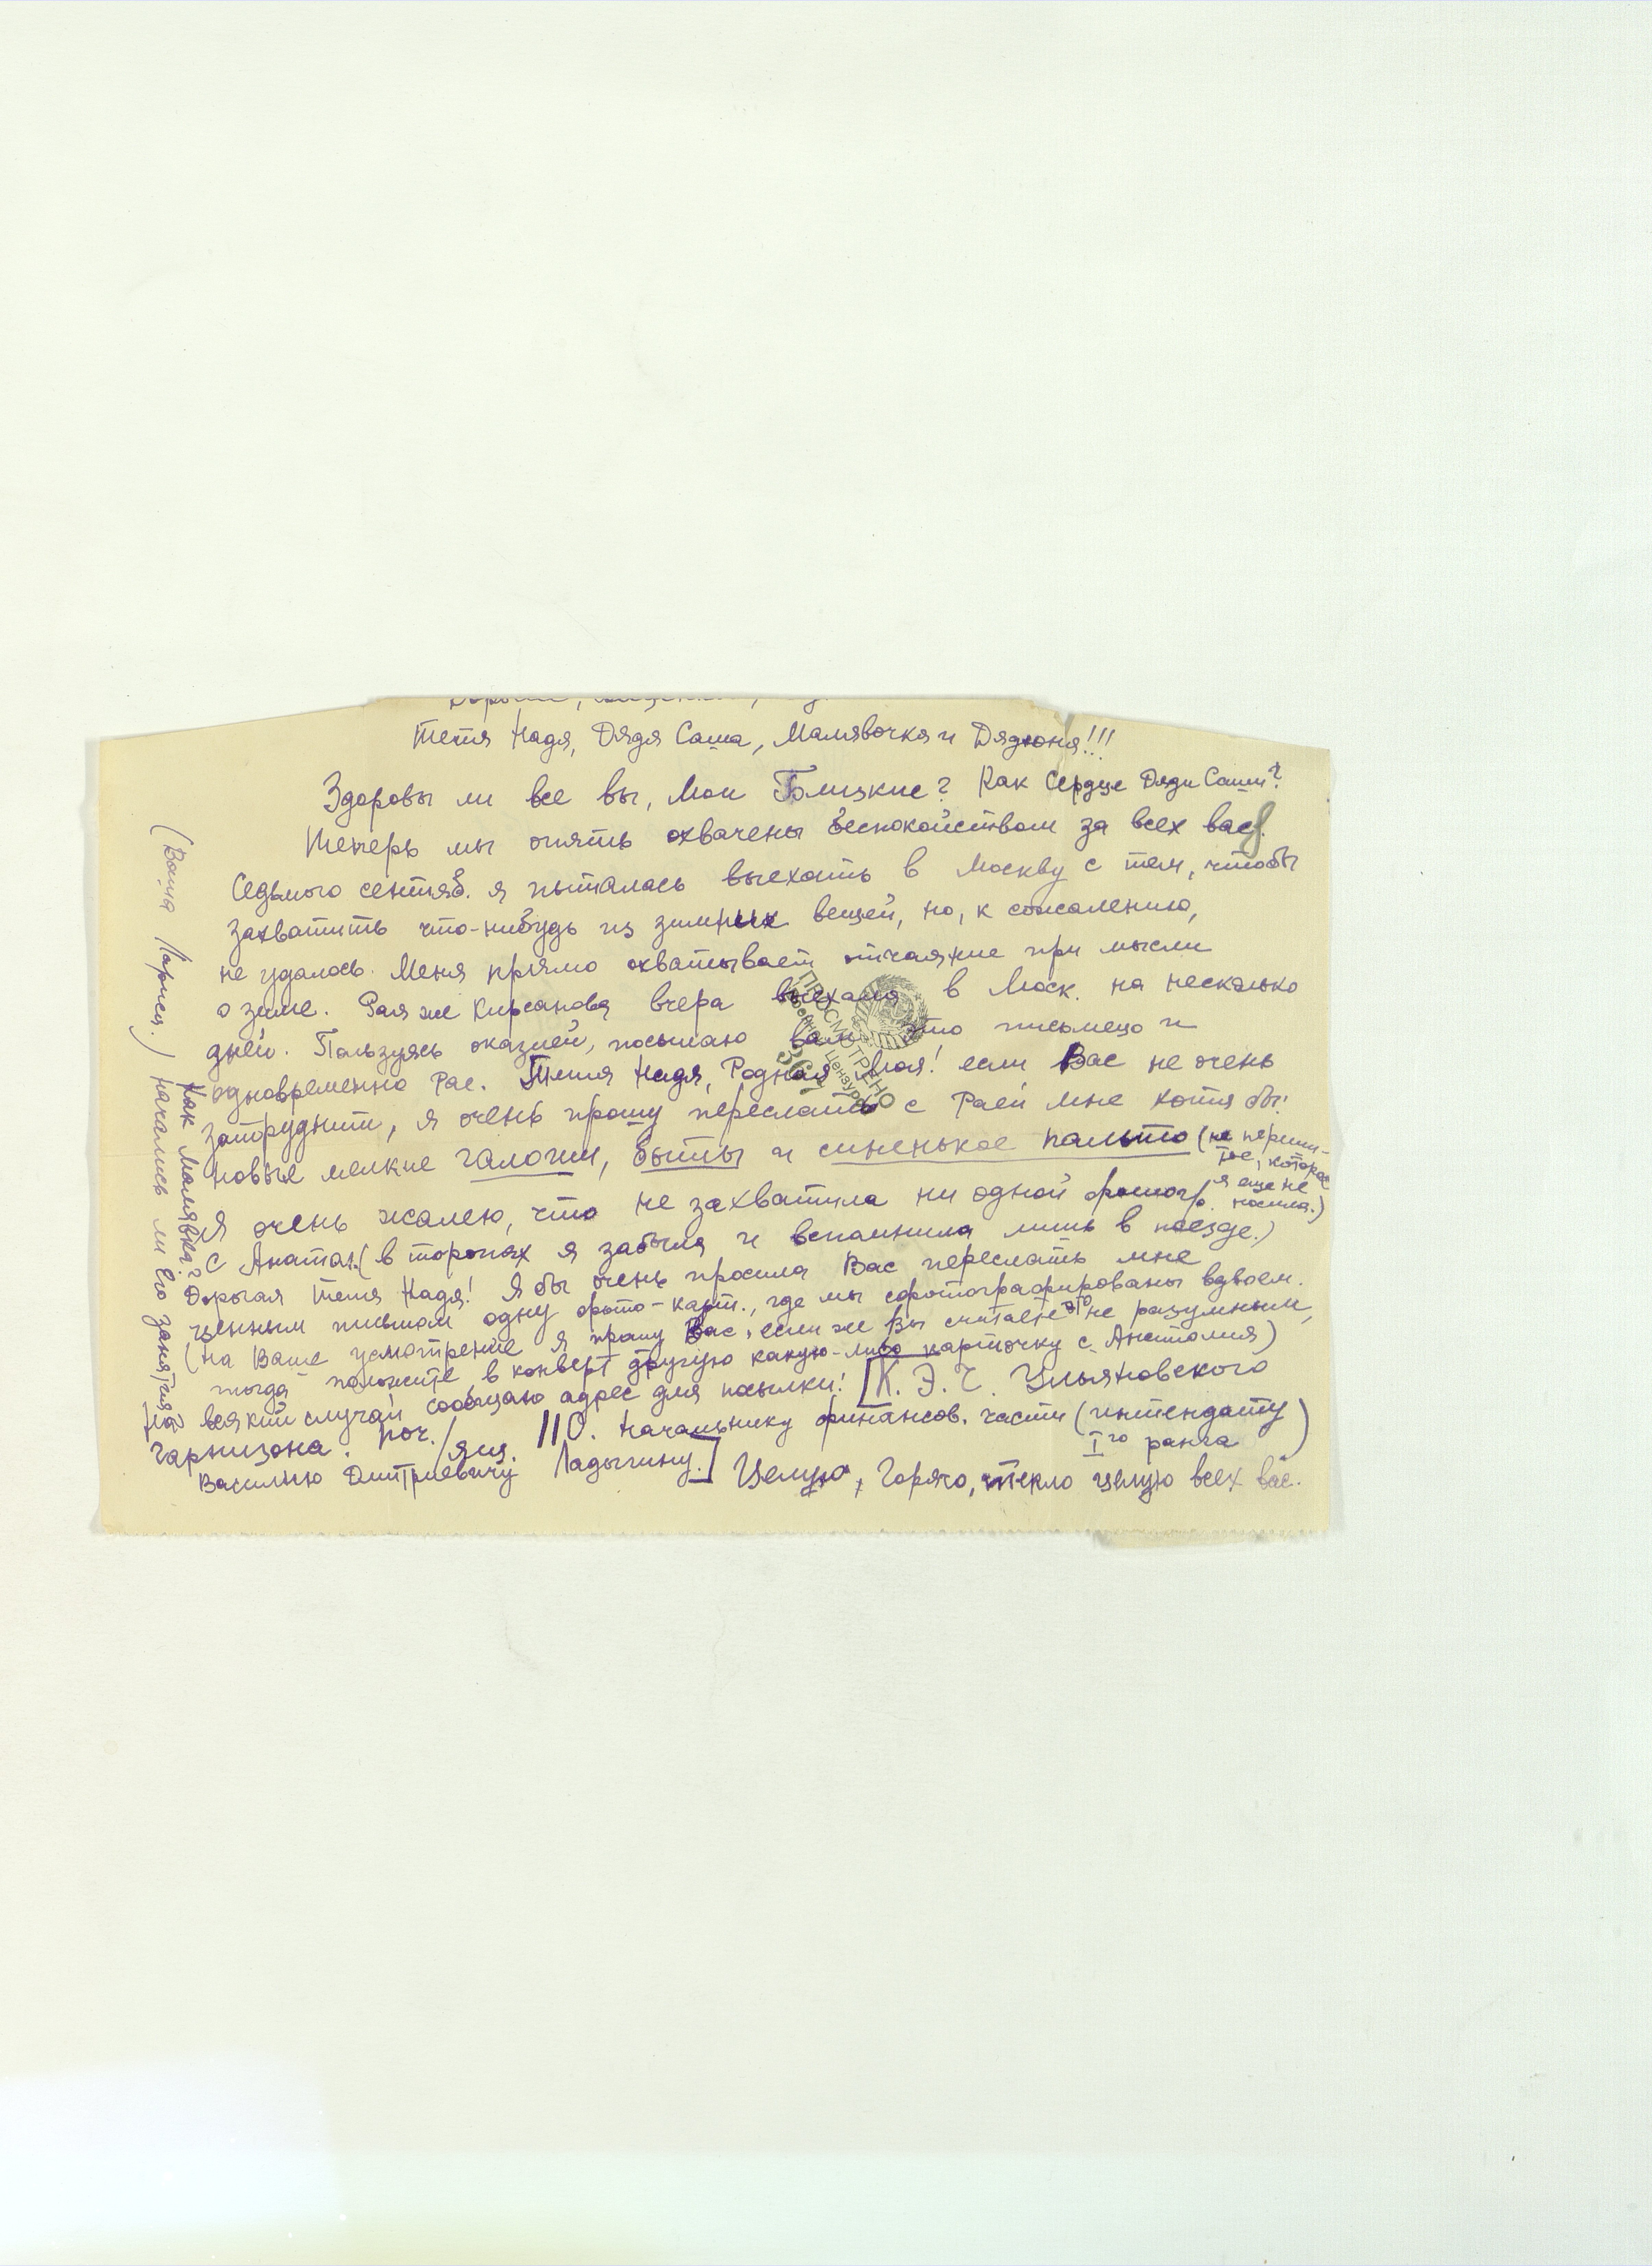 Тетя Надя, Дядя Саша, Малявочка и Дядюня!!!
Здоровы ли все вы, Мои Близкие? Как Сердце Дяди Саши?
Теперь мы опять охвачены беспокойством за всех вас.
Седьмого сентяб. я пыталась выехать в Москву с тем, чтобы
захватить что-нибудь из зимних вещей, но, к сожалению,
не удалось. Меня прямо охватывает отчаяние при мысли
о зиме. Рая же Кирсанова вчера выехала в Моск. на несколько
дней. Пользуясь оказией, посылаю вам это письмецо и
одновременно Рае. Тетя Надя, Родная Моя! если Вас не очень
затруднит, я очень прошу переслать с Раей мне хотя бы:
новые мелкие галоши, боты и синенькое пальто (не перши-
тое, которое
я еще не
носила.)
Я очень жалею, что не захватила ни одной фотогр.
с Анатол. (в торопях я забыла и вспомнила лишь в поезде.)
Дорогая Тетя Надя! Я бы очень просила Вас переслать мне
ценным письмом одну фото-карт., где мы сфотографированы вдвоем.
(на Ваше усмотрение я прошу Вас, если же Вы считаете это не разумным,
тогда положите в конверт другую какую-либо карточку с Анатолия)
На всякий случай сообщаю адрес для посылки: [К. Э. Ч. Ульяновского
гарнизона. поч./ящ. 110. Начальнику финансов. части (интенданту
I го ранга)
Василию Дмитриевичу Ладыгину.] Целую, Горячо, тепло целую всех вас.
Как Малявка?
Начались ли Его занятия?
(Ваша Ларися.)
ПРОСМОТРЕНО
Военной Цензурой